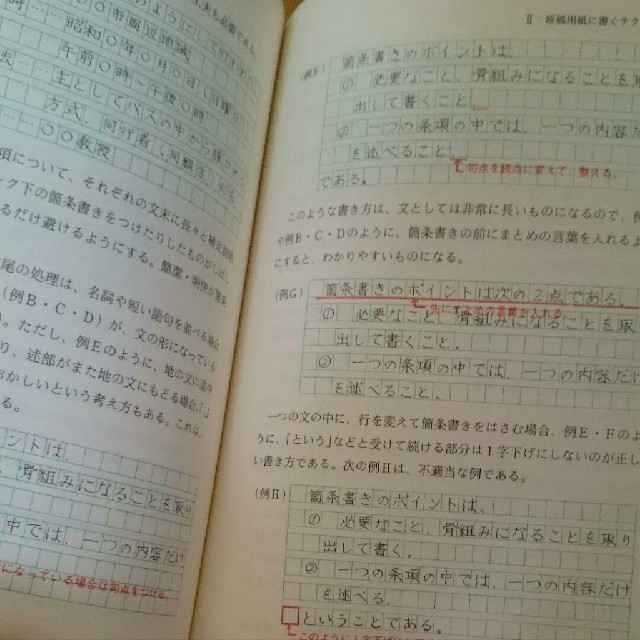 昭和〇年〇月〇日(日曜
午前〇時〜午後〇時
主としてバスの中から
方式
〇〇教授
項について、それぞれの文末に長々と補足説明
ック下の箇条書きをつけたりしたものがしば
るだけ避けるようにする。簡潔・明快が
尾の処理は、名詞や短い語句を並べる場合
(例B・C・D)が、文の形になっている
)。ただし、例Eのように、地の文に途中
り、述部がまた地の文にもどる場合、「。」
おかしいという考え方もある。これは、
る。
ントは
骨組みになることを取り
中では、一つの内容だけ
になっている場合は句点をつける。
II 原稿用紙に書くテク
(例F)
箇条書きのポイントは、
① 必要なこと、骨組みになることを
出して書くこと、
② 一つの条項の中では、一つの内容だ
を述べること、
句点を読点に変えて、整える。
である。
このような書き方は、文としては非常に長いものになるので、例
や例B・C・Dのように、箇条書きの前にまとめの言葉を入れるよ
にすると、わかりやすいものになる。
(例G)
箇条書きのポイントは次の2点である。
先にまとめの言葉を入れる
① 必要なこと、骨組みになることを取
出して書くこと。
② 一つの条項の中では、一つの内容だけ
を述べること。
一つの文の中に、行を変えて箇条書きをはさむ場合、例E・Fのよ
うに、「という」などと受けて続ける部分は1字下げにしないのが正し
い書き方である。次の例Hは、不適当な例である。
(例H)
箇条書きのポイントは、
① 必要なこと、骨組みになることを取り
出して書く。
② 一つの条項の中では、一つの内容だけ
を述べる。
ということである。
このように1字下